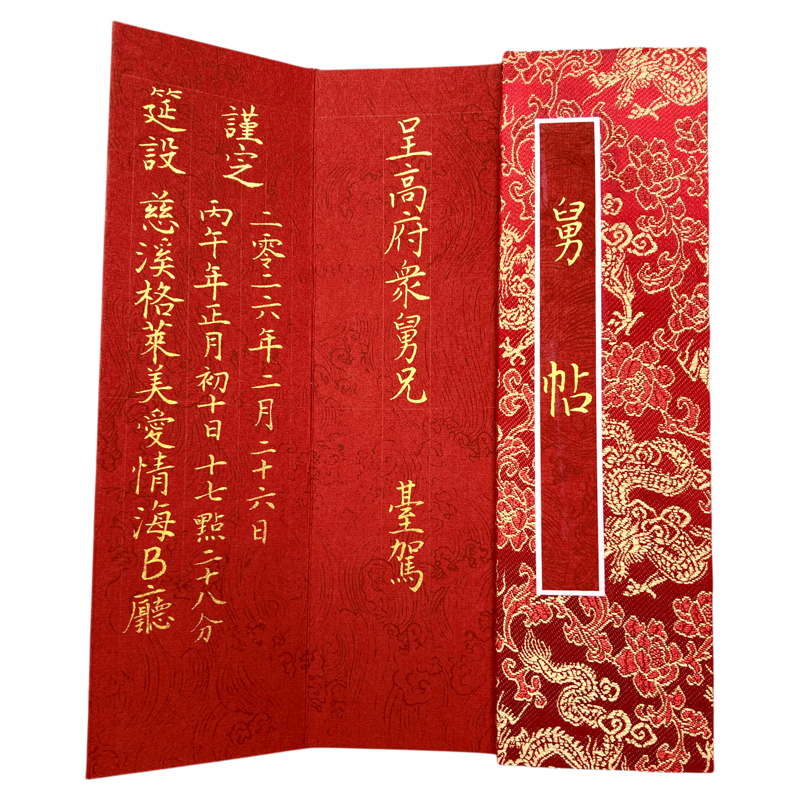 舅帖
呈高府衆舅兄 臺駕
謹定
二零二六年二月二十六日
丙午年正月初十日十七點二十八分
筵設 慈溪格萊美愛情海B廳